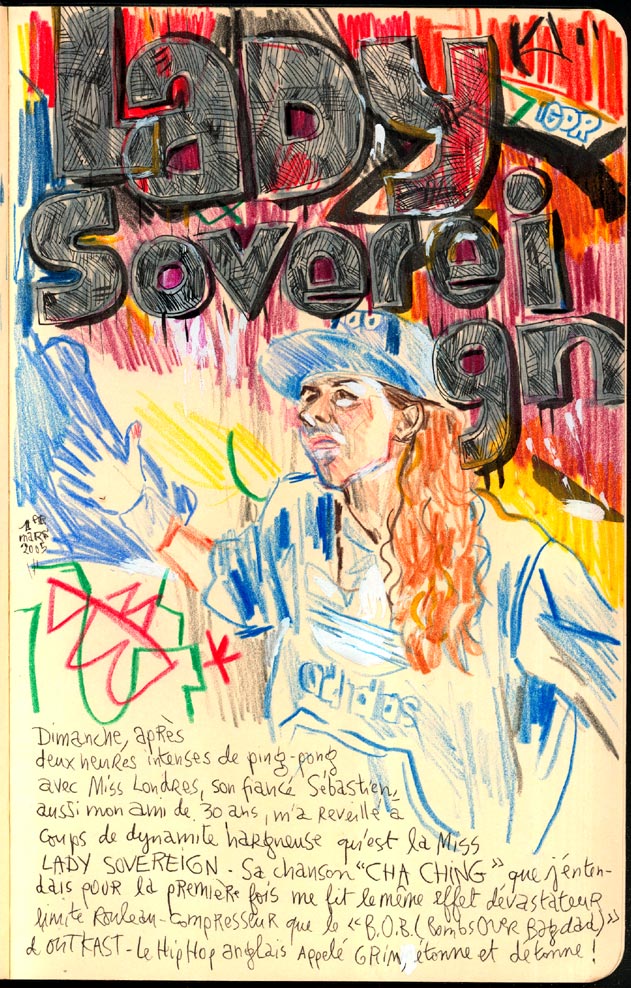 LADY
Soverei
gn
GDR
1er
mars
2005
adidas
Dimanche, après
deux heures intenses de ping-pong
avec Miss Londres, son fiancé Sébastien,
aussi mon ami de 30 ans, m'a reveillé à
coups de dynamite hargneuse qu'est la Miss
LADY SOVEREIGN - Sa chanson "CHA CHING" que j'enten-
dais pour la première fois me fit le même effet dévastateur
limite Rouleau-compresseur que le «B.O.B. (Bombs OVER Bagdad)»
d'OUTKAST - Le HipHop anglais Appelé GRIM, étonne et détonne !